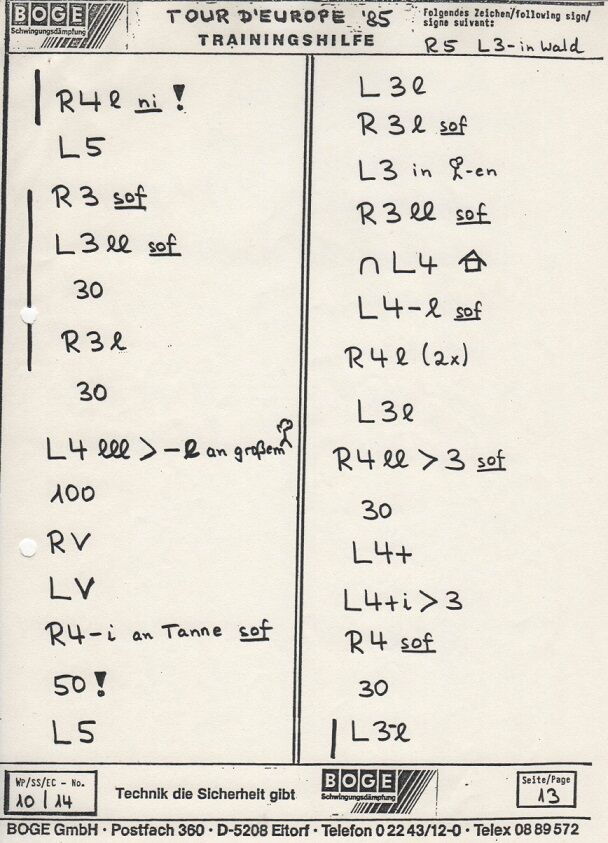 BOGE
Schwingungsdämpfung
TOUR D'EUROPE '85
TRAININGSHILFE
Folgendes Zeichen/following sign/
signe suivants
R5 L3-in Wald
R4l ni !
L5
R3 sof
L3ll sof
30
R3l
30
L4lll > -l an großem
100
RV
LV
R4-i an Tanne sof
50!
L5
L3l
R3l sof
L3 in -en
R3ll sof
∩ L4
L4-l sof
R4l (2x)
L3l
R4ll > 3 sof
30
L4+
L4+i > 3
R4 sof
30
L3-l
WP/SS/EC - No.
10 / 14
Technik die Sicherheit gibt
BOGE
Schwingungsdämpfung
Seite/Page
13
BOGE GmbH · Postfach 360 · D-5208 Eitorf · Telefon 0 22 43/12-0 · Telex 08 89 572